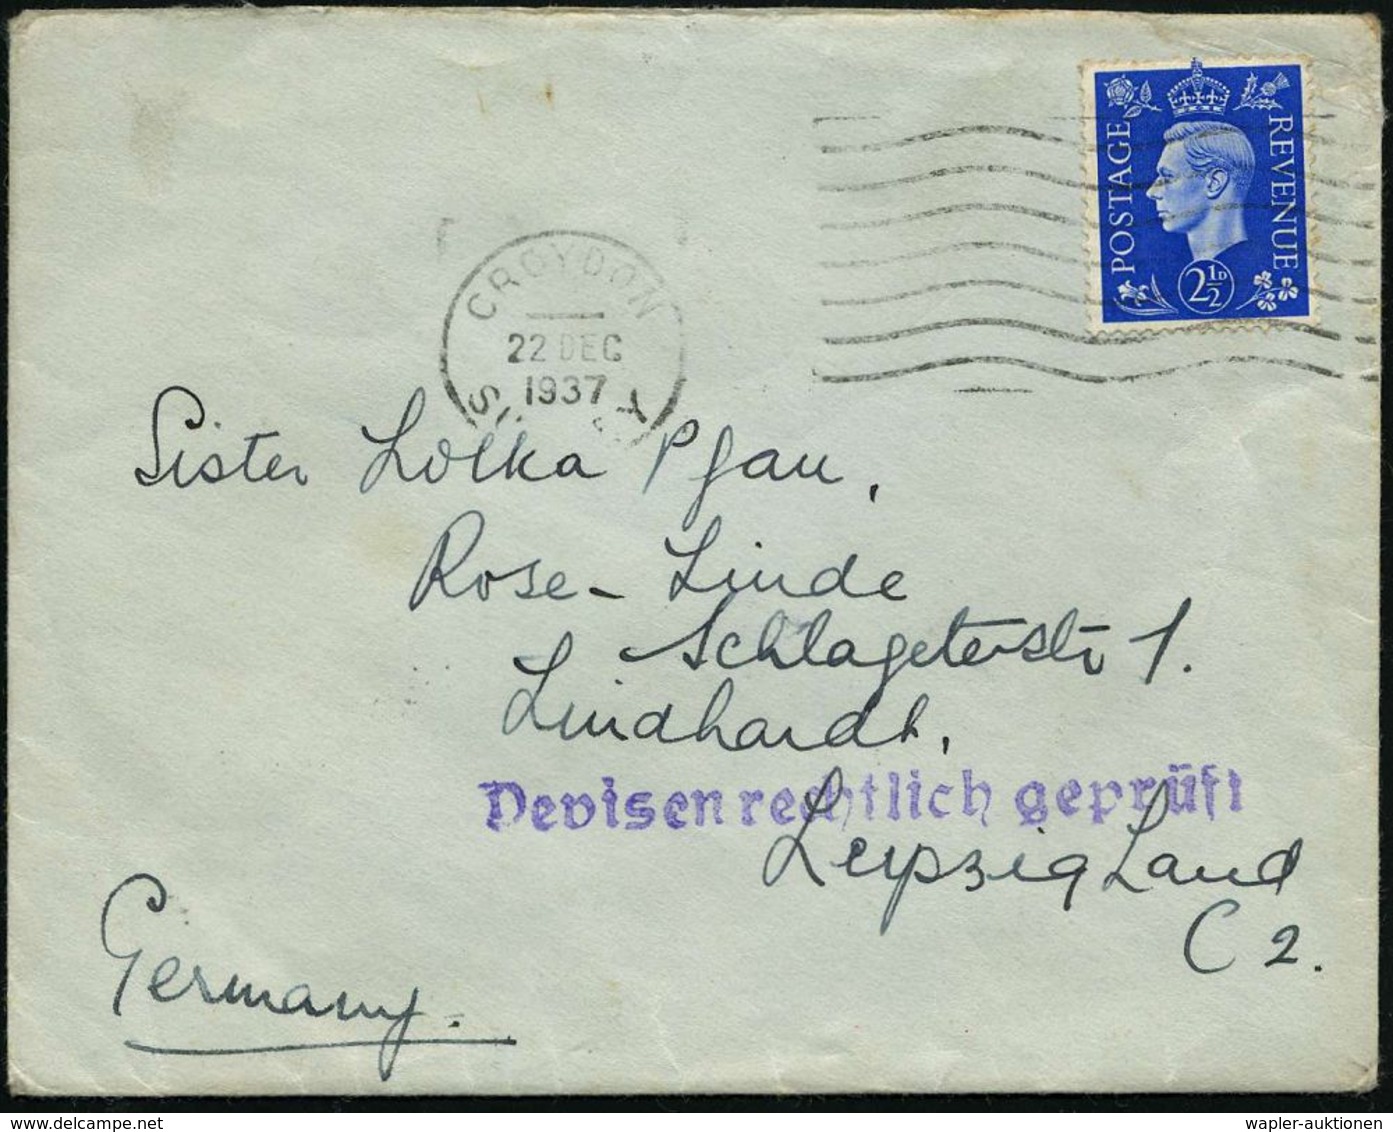 POSTAGE
REVENUE
2½D
CROYDON
22 DEC
1937
Sister Lolka Pfau,
Rose-Linde
Schlageterstr 1.
Lindhardt,
Devisenrechtlich geprüft
Leipzig Land
C 2.
Germany.
www.delcampe.net
wapler-auktionen